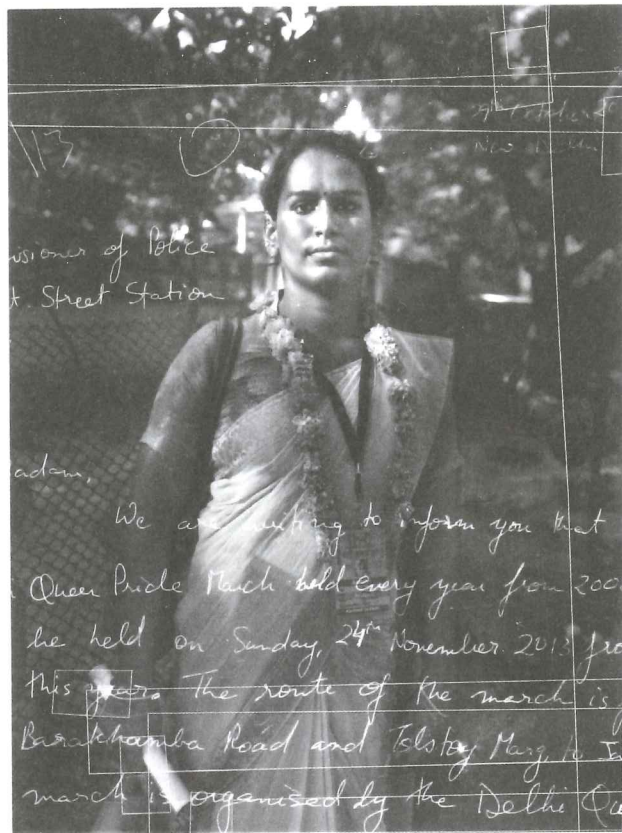 \13
29th October 20
New Delhi
issioner of Police
t Street Station
adam,
We are writing to inform you that
Queer Pride March held every year from 200
be held on Sunday, 24th November 2013 fro
this year. The route of the march is f
Barakhamba Road and Tolstoy Marg, to
march is organised by the Delhi Que